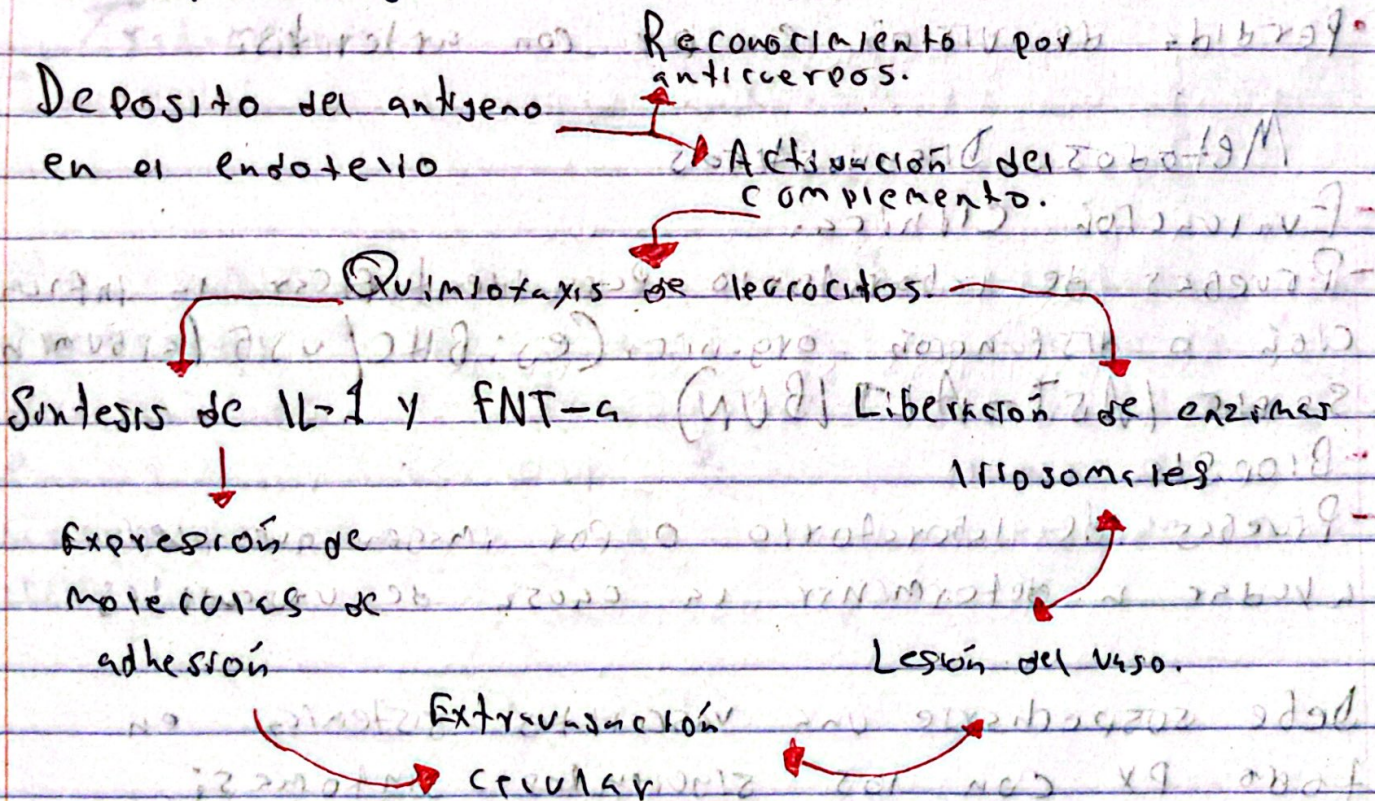 Reconocimiento por
anticuerpos.
Deposito del antigeno
en el endotelio
Activación del
complemento.
Quimiotaxis de leucocitos.
Sintesis de IL-1 y FNT-a
Liberación de enzimas
lisosomales
Expresión de
moleculas de
adhesión
Lesión del vaso.
Extravasación
celular